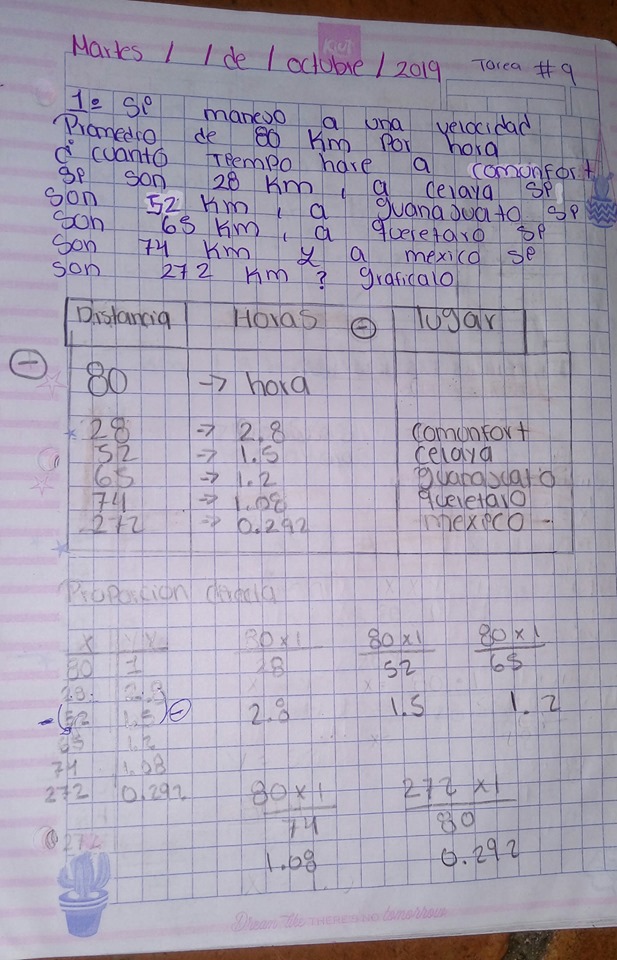 Martes / 1 de / octubre / 2019 Tarea # 9
1º Si manejo a una velocidad
Promedio de 80 Km Por hora
¿ cuanto Tiempo hare a comonfort
Si son 28 Km, a celaya si
son 52 Km, a guanajuato si
son 65 Km, a queretaro si
son 74 Km y a mexico si
son 272 Km ? graficalo
Distancia Horas lugar
80 → hora
28 → 2.8 comonfort
52 → 1.5 celaya
65 → 1.2 guanajuato
74 → 1.08 queretaro
272 → 0.292 mexico
Proporcion directa
X Y
80 1
28 2.8
52 1.5
65 1.2
74 1.08
272 0.292
272
80 x 1
28
2.8
80 x 1
52
1.5
80 x 1
65
1.2
80 x 1
74
1.08
272 x 1
80
0.292
Dream like THERE'S NO tomorrow